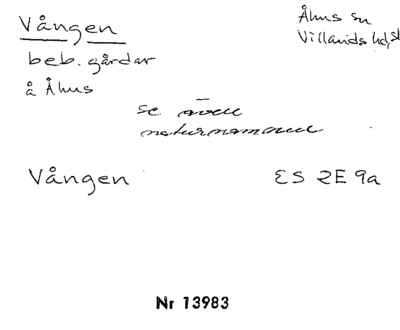 Vången
Åhus sn
Villands hd, sk
beb. gårdar
å Åhus
se även
naturnamnen
Vången ES 2E 9a
Nr 13983